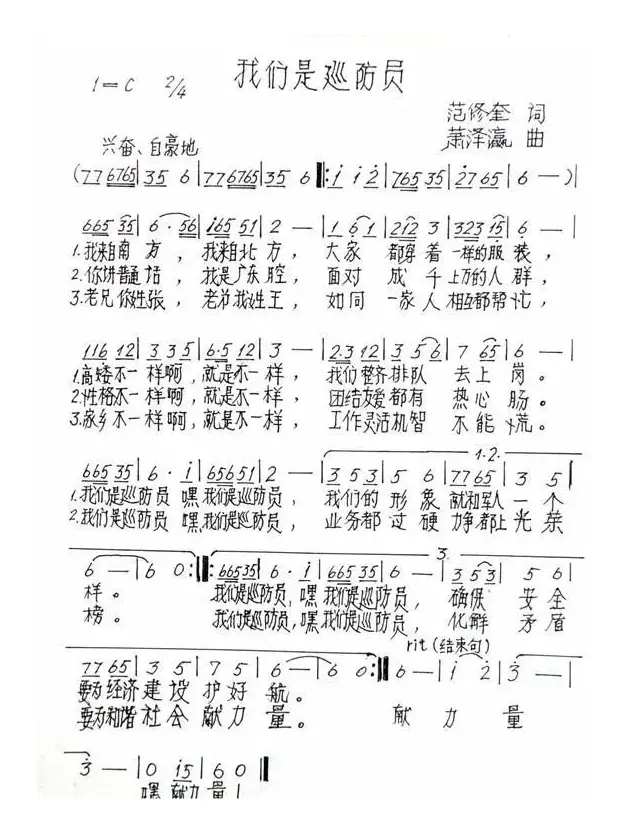 我们是巡防员
1=C 2/4
范修奎 词
萧泽瀛 曲
兴奋、自豪地
(77 6765|35 6|77 6765|35 6‖:i i2|765 35|2765|6 —)|
665 35|6·56|i65 51|2 —|1 61|212 3|323 15|6 —|
1.我来自南方，我来自北方，大家都穿着一样的服装，
2.你讲普通话，我是广东腔，面对成千上万的人群，
3.老兄你姓张，老弟我姓王，如同一家人相互都帮忙，
116 12|3 35|6·5 12|3 —|2·3 12|3 56|7 65|6 —|
1.高矮不一样啊，就是不一样，我们整齐排队去上岗。
2.性格不一样啊，就是不一样，团结友爱都有热心肠。
3.家乡不一样啊，就是不一样，工作灵活机智不能慌。
1.2.
665 35|6·i|656 51|2 —|3 53|5 6|77 65|3 5|
1.我们是巡防员嘿我们是巡防员，我们的形象就和军人一个
2.我们是巡防员嘿我们是巡防员，业务都过硬力争都上光荣
3.
6 —|6 0:‖:665 35|6·i|665 35|6 —|3 53|5 6|
样。我们是巡防员，嘿我们是巡防员，确保安全
榜。我们是巡防员，嘿我们是巡防员，化解矛盾
rit(结束句)
77 65|3 5|7 5|6 —|6 0:‖6 —|i 2|3 —|
要为经济建设护好航。
要为和谐社会献力量。献力量
3 —|0 i5|6 0‖
嘿献力量！